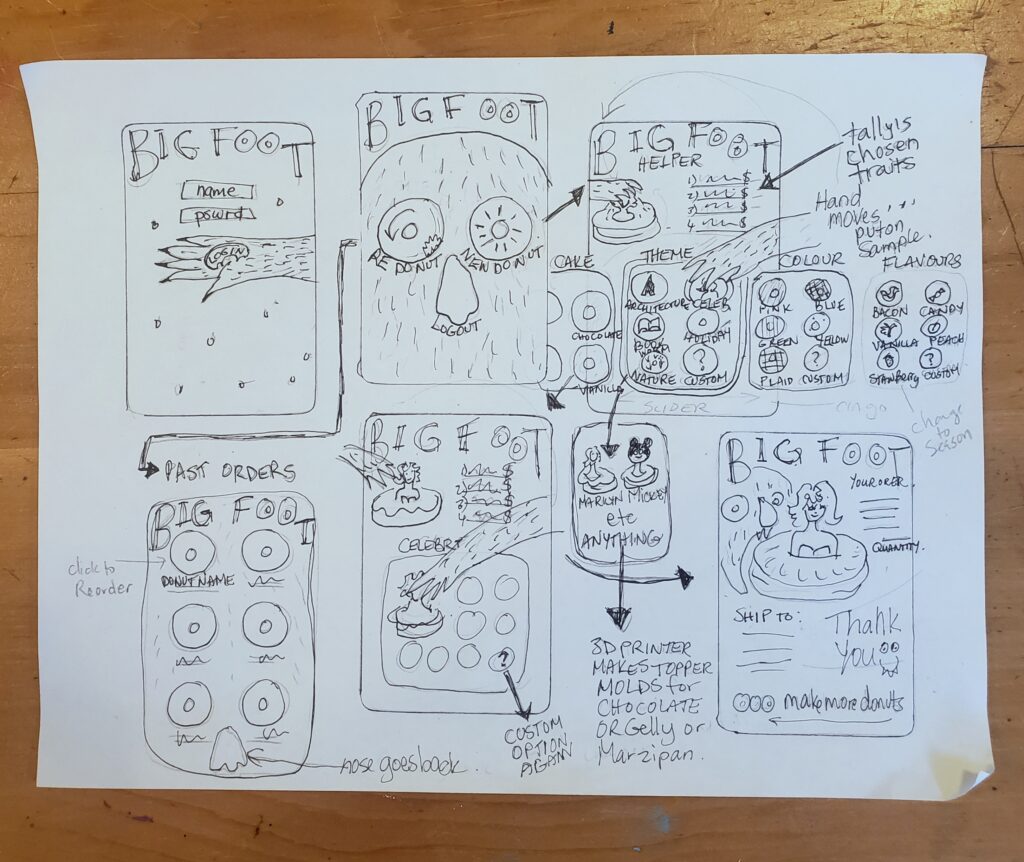 BIG FOOT
name
pswrd
LOGIN
BIG FOOT
RE DONUT
NEW DONUT
LOGOUT
BIG FOOT
HELPER
1) $
2) $
3) $
4 $
tallyls
chosen
traits
Hand
moves...
puton
Sample.
CAKE
CHOCOLATE
VANILLA
THEME
ARCHITECTURE
CELEB
BOOK
WORM
HOLIDAY
NATURE
CUSTOM
COLOUR
PINK
BLUE
GREEN
YELLOW
PLAID
CUSTOM
FLAVOURS
BACON
CANDY
VANILLA
PEACH
STAWBERRY
CUSTOM
SLIDER
can go
change
to
Season
PAST ORDERS
BIG FOOT
click to
Reorder
DONUT NAME
nose goes back.
BIG FOOT
$
$
$
4 $
CELEBRT
?
CUSTOM
OPTION
AGAIN
MARILYN MICKEY
etc
ANYTHING
3D PRINTER
MAKES TOPPER
MOLDS for
CHOCOLATE
OR Gelly or
Marzipan.
BIG FOOT
YOUR ORER.
QUANTITY.
SHIP TO:
Thank
You
make more donuts